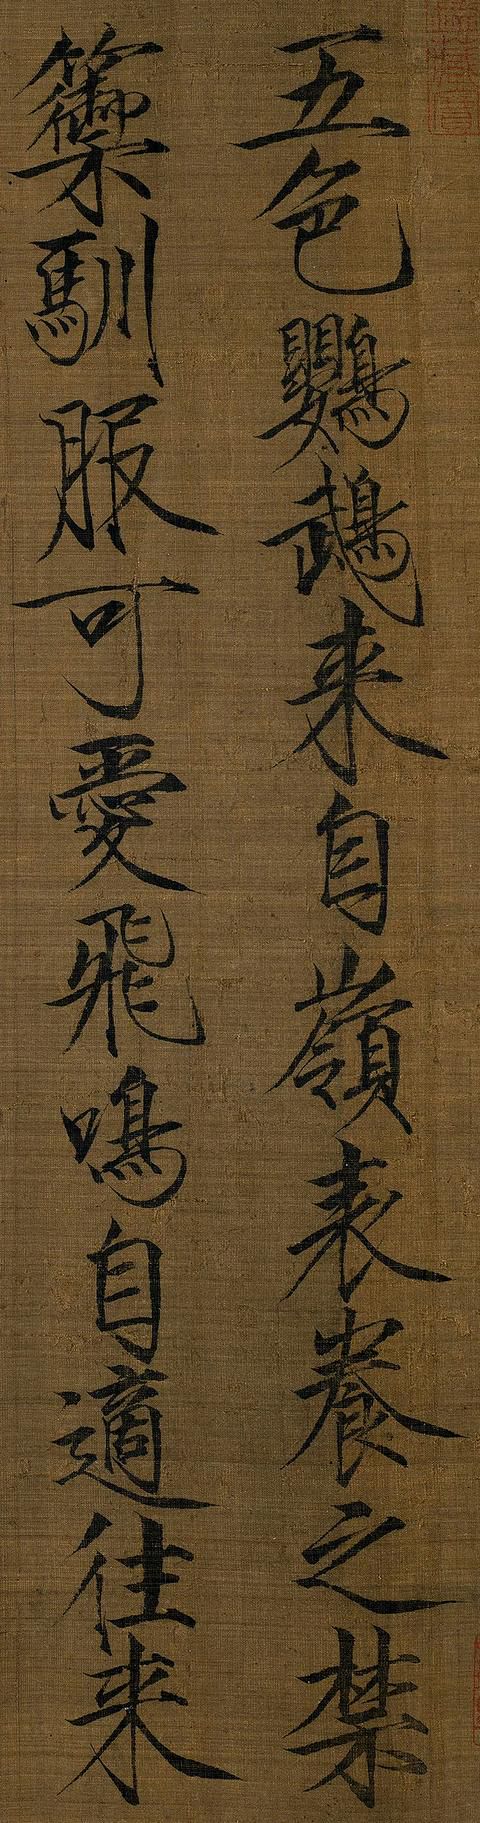 五色鸚鵡来自嶺表養之禁
籞馴服可愛飛鳴自適往来